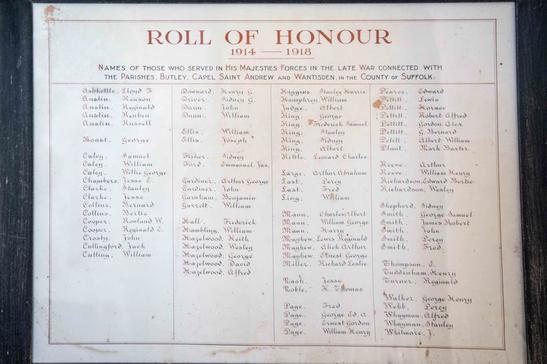 ROLL OF HONOUR
1914 — 1918
NAMES OF THOSE WHO SERVED IN HIS MAJESTIES FORCES IN THE LATE WAR CONNECTED WITH
THE PARISHES, BUTLEY, CAPEL SAINT ANDREW AND WANTISDEN, IN THE COUNTY OF SUFFOLK.
Ashkettle, Lloyd F
Austin, Henson
Austin, Reginald
Austin, Reuben
Austin, Russell
Boast, George
Caley, Samuel
Caley, William
Caley, Willie George
Chambers, Jesse
Clarke, Stanley
Clarke, Jesse
Collins, Bernard
Collins, Bertie
Cooper, Rowland W.
Cooper, Reginald E.
Crosby, John
Cullingford, Jack
Cutting, William
Downard, Henry G.
Driver, Sidney G.
Dunn, John
Dunn, William
Ellis, William
Ellis, Joseph
Fisher, Sidney
Ford, Emmanuel Jas.
Gardiner, Arthur George
Gardiner, John
Garnham, Benjamin
Garrett, William
Hall, Frederick
Hambling, William
Hazelwood, Keith
Hazelwood, Wesley
Hazelwood, George
Hazelwood, David
Hazelwood, Alfred
Higgins, Stanley Harris
Humphrey, William
Judge, Albert
King, George
King, Frederick Samuel
King, Stanley
King, Sidney
King, Albert
Kittle, Leonard Charles
Large, Arthur Abraham
Last, Percy
Last, Fred
Ling, William
Mann, Charles Albert
Mann, William George
Mann, Harry
Mayhew, Lewis Reginald
Mayhew, Alick Arthur
Mayhew, Ernest George
Miller, Richard Leslie
Nash, Jesse
Noble, H. Thomas
Page, Fred
Page, George Ed. A
Page, Ernest Gordon
Page, William Henry
Pearce, Edward
Pettit, Lewis
Pettit, Horace
Pettit, Robert Alfred
Pettit, Gordon Alex
Pettit, G. Bernard
Pettit, Albert William
Plant, Mark Baxter
Reeve, Arthur
Reeve, William Henry
Richardson, Edward Bertie
Richardson, Wesley
Shepherd, Sidney
Smith, George Samuel
Smith, James Robert
Smith, John
Smith, Percy
Smith, Fred
Thompson,
Tuddenham, Henry
Turner, Reginald
Walker, George Henry
Webb, Percy
Whayman, Alfred
Whayman, Stanley
Whitmore, J.